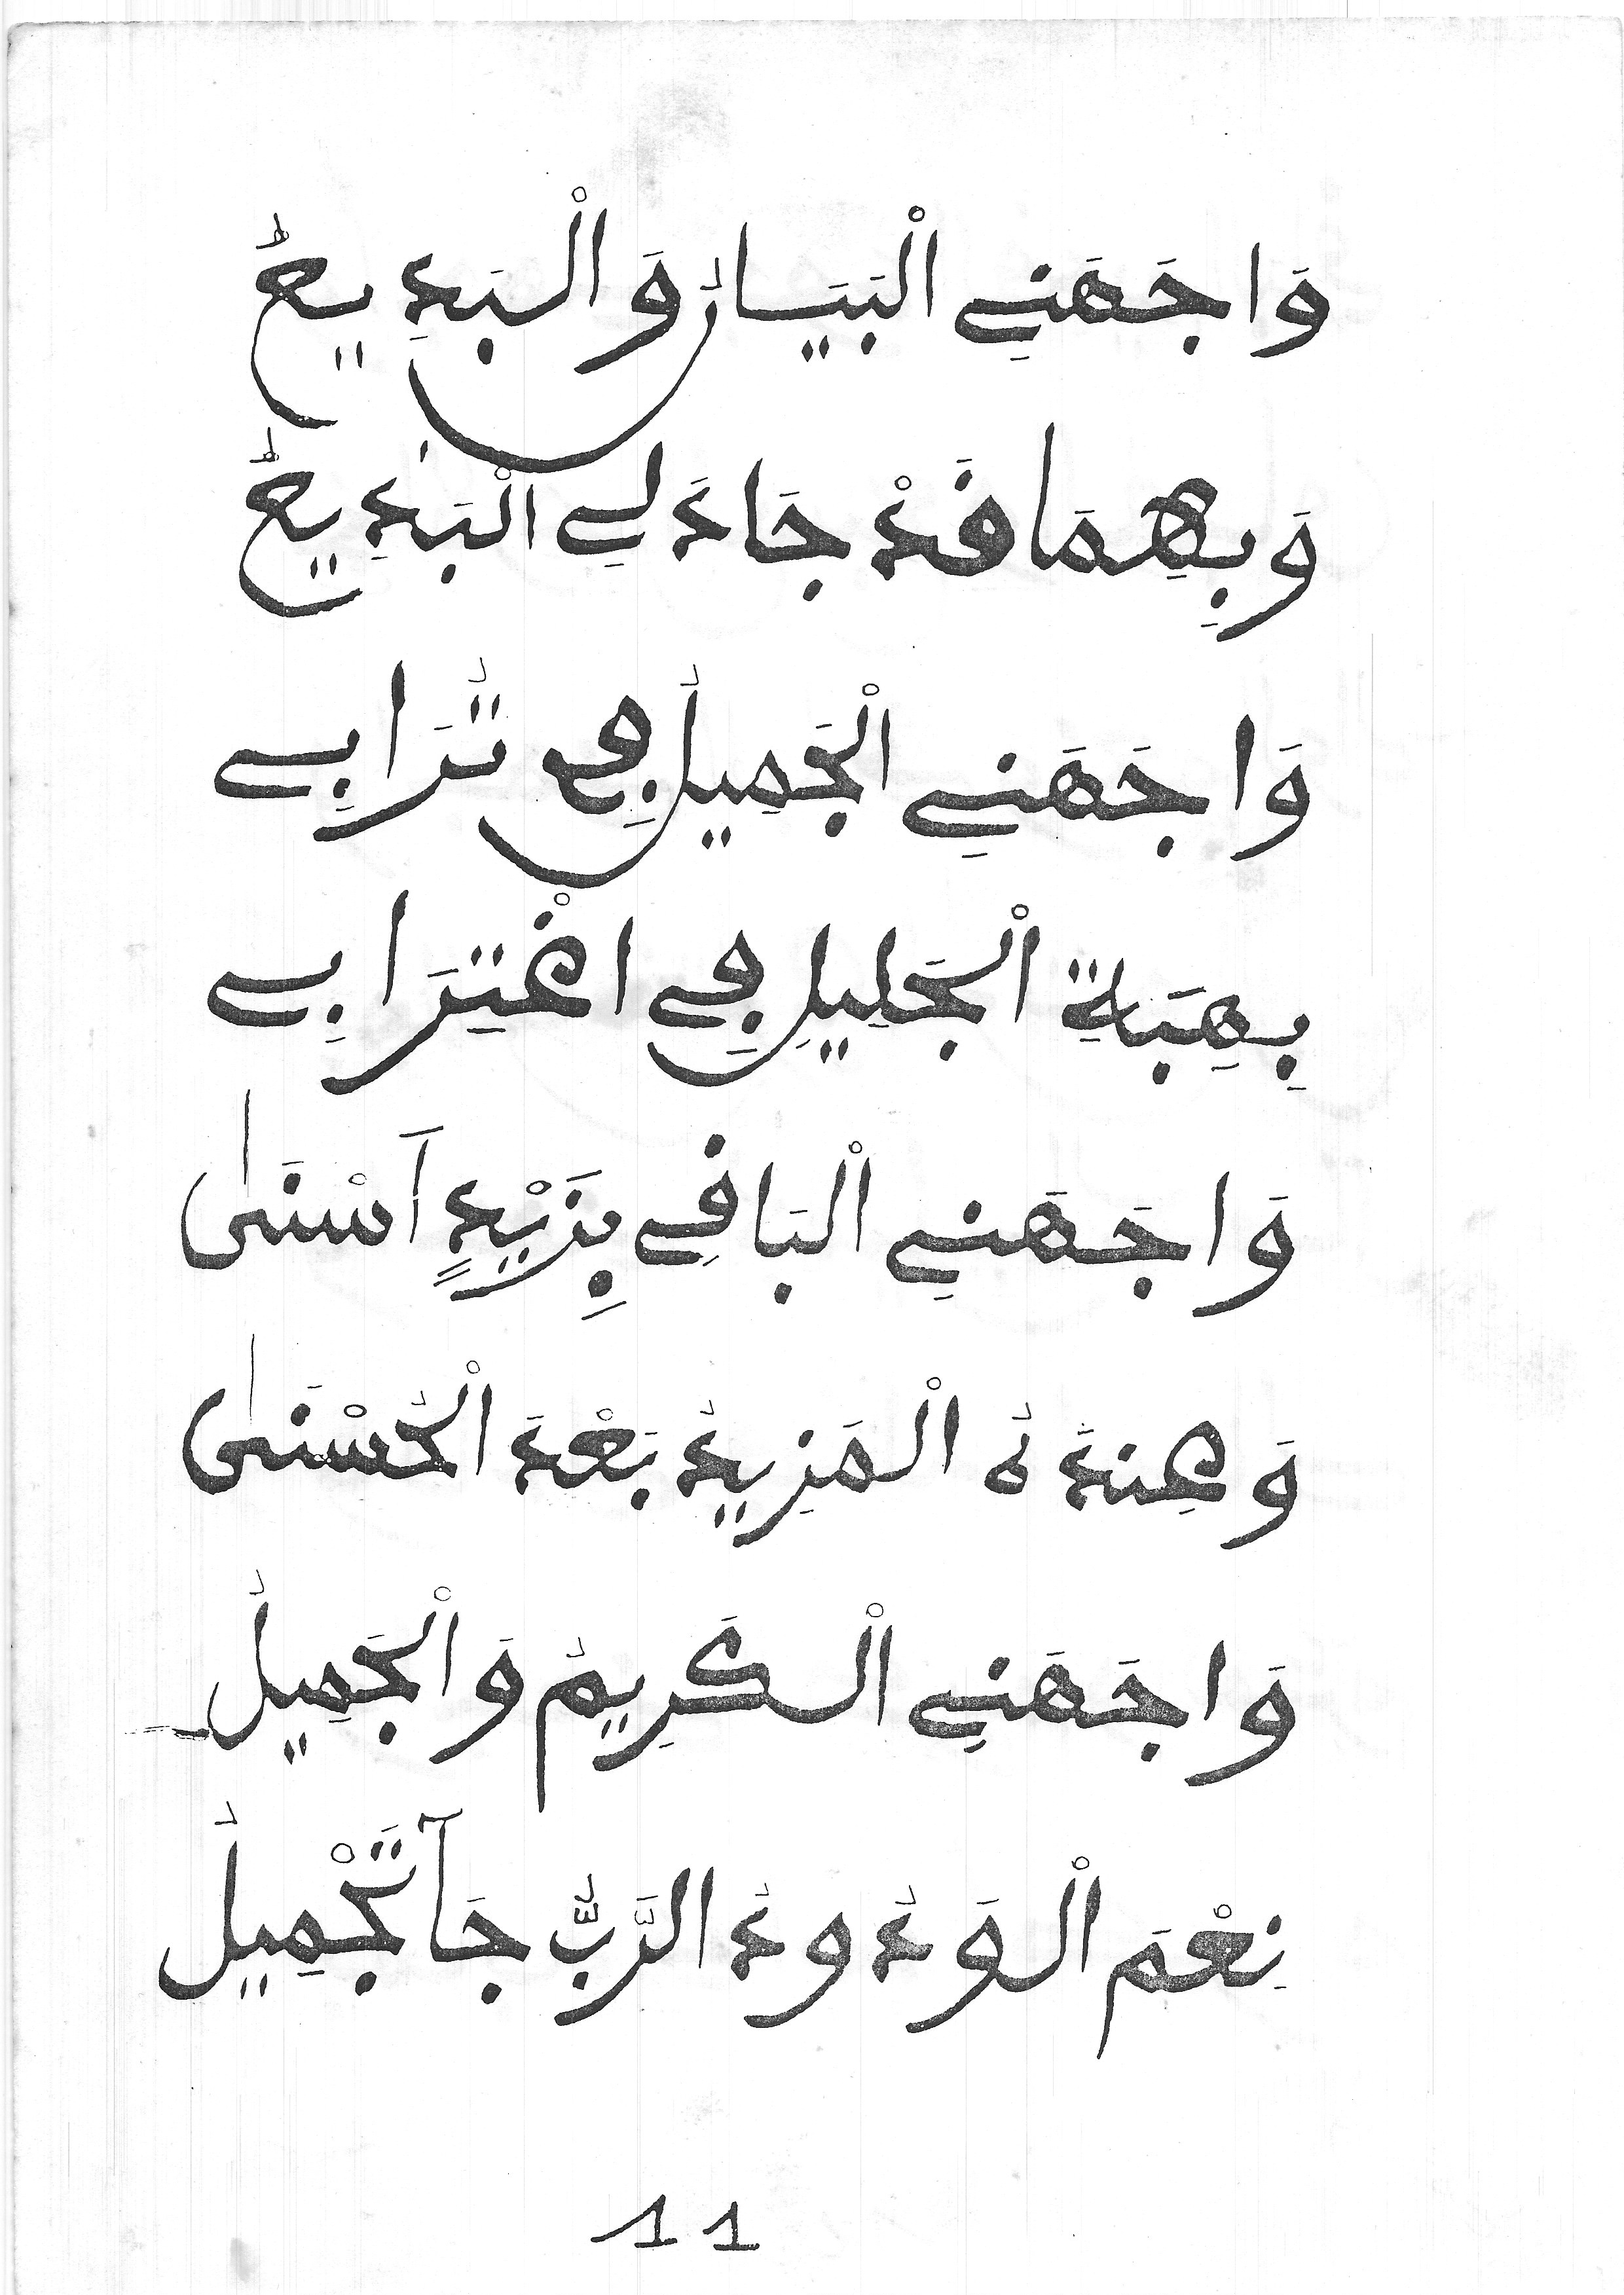 وَاجَهَنِي الْبَيَانُ وَالْبَدِيعُ
وَبِهِمَا قَدْ جَادَ لِي الْبَدِيعُ
وَاجَهَنِي الْجَمِيلُ فِي تُرَابِي
بِهِبَةِ الْجَلِيلِ فِي اغْتِرَابِي
وَاجَهَنِي الْبَاقِي بِزَيْدٍ أَسْنَى
وَعِنْدَهُ الْمَزِيدُ بَعْدَ الْحُسْنَى
وَاجَهَنِي الْكَرِيمُ وَالْجَمِيلُ
نِعْمَ الْوَدُودُ الرَّبُّ جَا تَجْمِيلُ
11